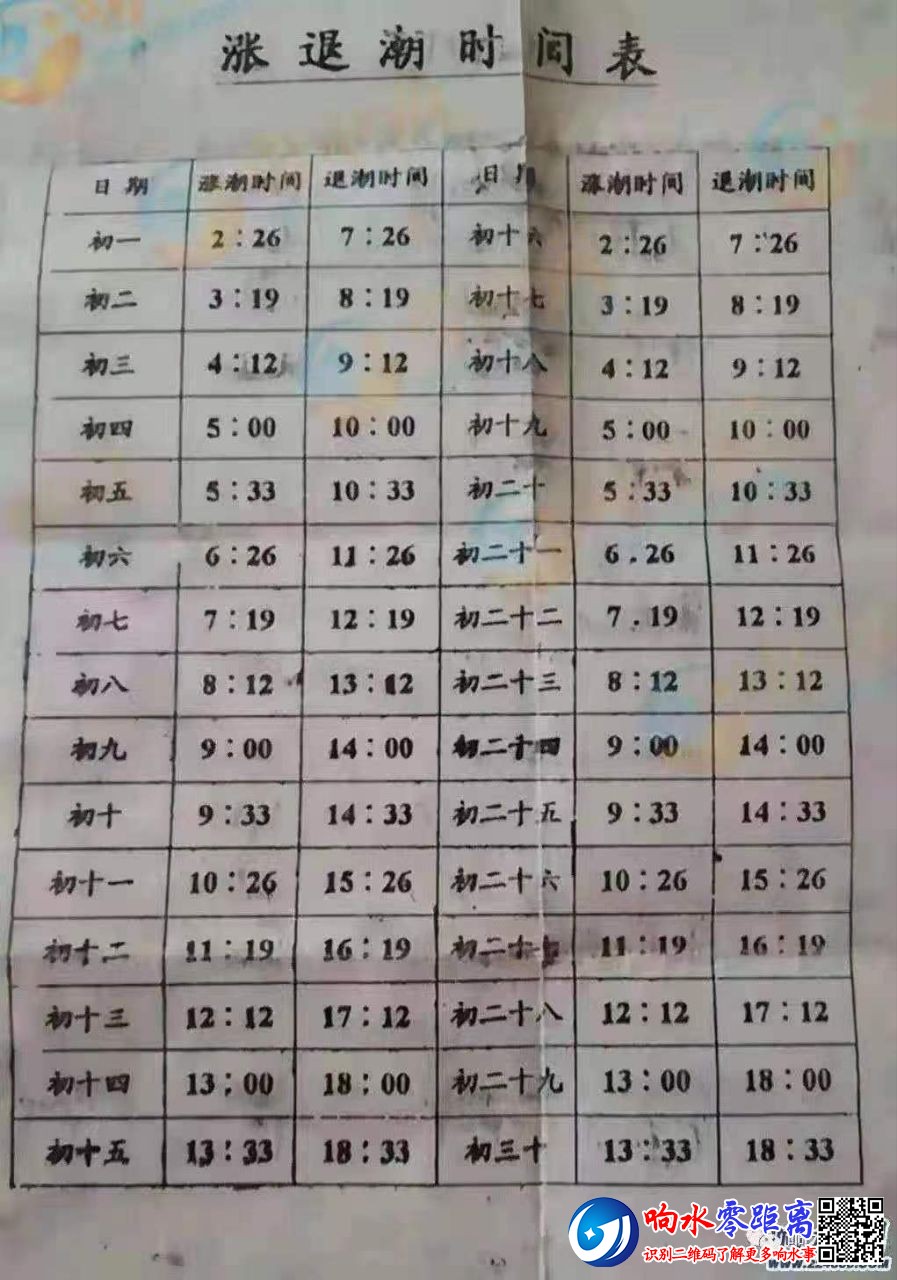 涨退潮时间表
日期 涨潮时间 退潮时间 日期 涨潮时间 退潮时间
初一 2:26 7:26 初十六 2:26 7:26
初二 3:19 8:19 初十七 3:19 8:19
初三 4:12 9:12 初十八 4:12 9:12
初四 5:00 10:00 初十九 5:00 10:00
初五 5:33 10:33 初二十 5:33 10:33
初六 6:26 11:26 初二十一 6.26 11:26
初七 7:19 12:19 初二十二 7.19 12:19
初八 8:12 13:12 初二十三 8:12 13:12
初九 9:00 14:00 初二十四 9:00 14:00
初十 9:33 14:33 初二十五 9:33 14:33
初十一 10:26 15:26 初二十六 10:26 15:26
初十二 11:19 16:19 初二十七 11:19 16:19
初十三 12:12 17:12 初二十八 12:12 17:12
初十四 13:00 18:00 初二十九 13:00 18:00
初十五 13:33 18:33 初三十 13:33 18:33
响水零距离
识别二维码了解更多响水事